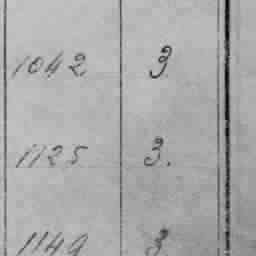 1042 3
1125 3.
1149 3